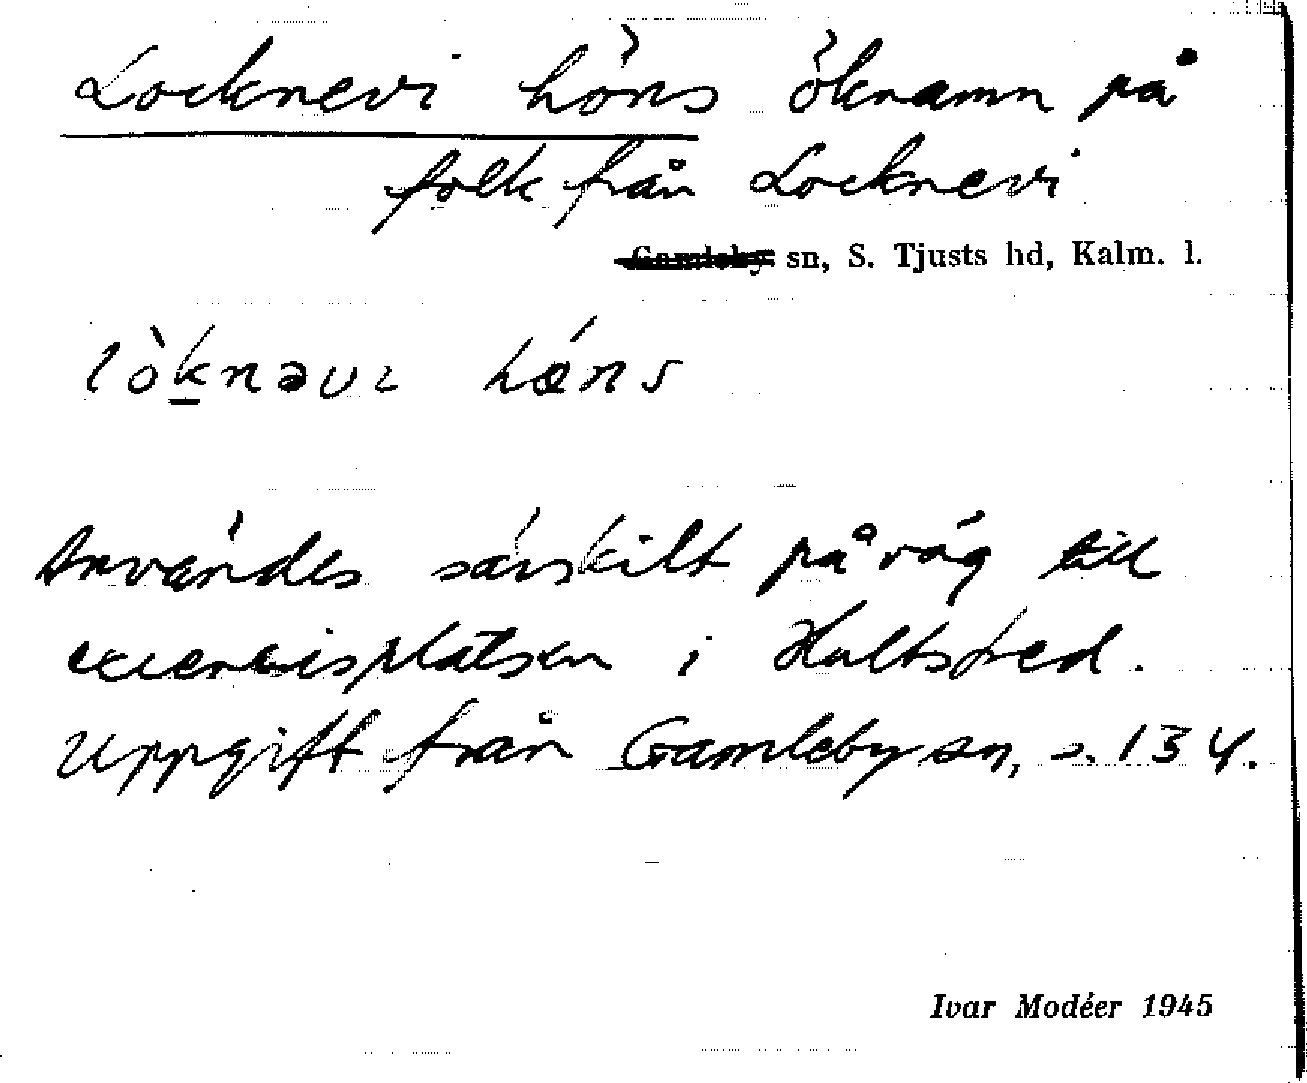 Locknevi höns öknamn på
folk från Locknevi
Gamleby sn, S. Tjusts hd, Kalm. l.
lòk̲nəvɩ hǿns
Användes särskilt på väg till
exercisplatsen i Hultsfred.
Uppgift från Gamleby sn, s. 134.
Ivar Modéer 1945